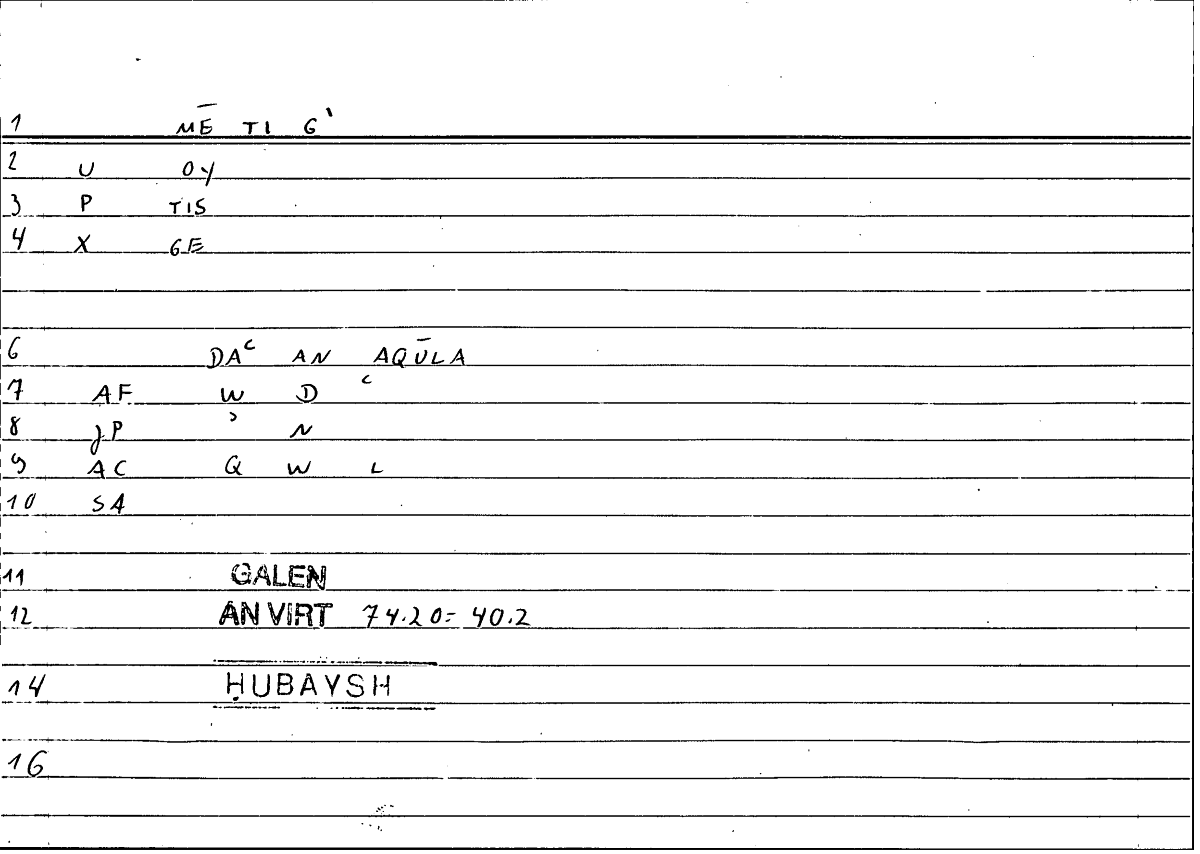 1 MĒ TI G`
2 U OY
3 P TIS
4 X GE
6 DAᶜ AN AQŪLA
7 AF W D ᶜ
8 JP ʾ N
9 AC Q W L
10 SA
11 GALEN
12 AN VIRT 74.20= 40.2
14 ḤUBAYSH
16